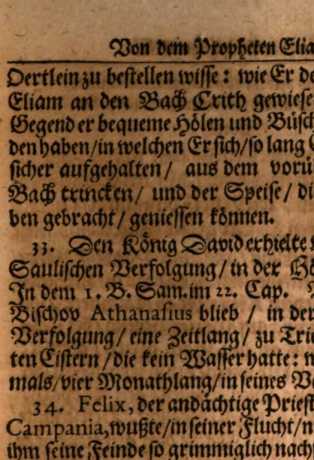 Von dem Propheten Elia
Oertlein zu bestellen wisse: wie Er de
Eliam an den Bach Crith gewiese
Gegend er bequeme Hölen und Büsch
den haben/in welchen Er sich/so lang
sicher aufgehalten/ aus dem vorü
Bach trincken/ und der Speise/ di
ben gebracht/ geniessen können.
33. Den König David erhielte
Saulischen Verfolgung/in der Hö
In dem 1. B. Sam. im 22. Cap.
Bischov Athanasius blieb / in der
Verfolgung/ eine Zeitlang/ zu Trie
ten Cistern/die kein Wasser hatte: w
mals/vier Monathlang/in seines Va
34. Felix, der andächtige Priest
Campania, wußte/in seiner Flucht/n
ihm seine Feinde so grimmiglich nach